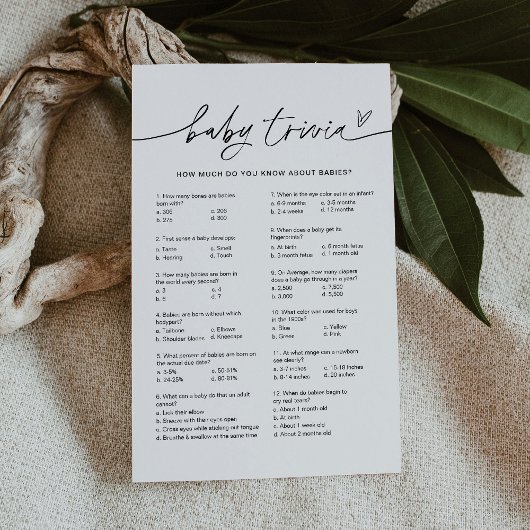 baby trivia
HOW MUCH DO YOU KNOW ABOUT BABIES?
1. How many bones are babies
born with?
a. 306 c. 206
b. 275 d. 300
2. First sense a baby develops:
a. Taste c. Smell
b. Hearing d. Touch
3. How many babies are born in
the world every second?
a. 3 c. 4
b. 6 d. 7
4. Babies are born without which
bodypart?
a. Tailbone c. Elbows
b. Shoulder blades d. Kneecaps
5. What percent of babies are born on
the actual due date?
a. 3-5% c. 50-51%
b. 24-25% d. 80-81%
6. What can a baby do that an adult
cannot?
a. Lick their elbow
b. Sneeze with their eyes open
c. Cross eyes while sticking out tongue
d. Breathe & swallow at the same time
7. When is the eye color set in an infant?
a. 6-9 months c. 3-5 months
b. 2-4 weeks d. 12 months
8. When does a baby get its
fingerprints?
a. At birth c. 6 month fetus
b. 3 month fetus d. 1 month old
9. On Average, how many diapers
does a baby go through in a year?
a. 2,500 c. 7,500
b. 3,000 d. 5,500
10. What color was used for boys
in the 1900s?
a. Blue c. Yellow
b. Green d. Pink
11. At what range can a newborn
see clearly?
a. 3-7 inches c. 15-18 inches
b. 8-14 inches d. 20 inches
12. When do babies begin to
cry real tears?
a. About 1 month old
b. At birth
c. About 1 week old
d. About 2 months old